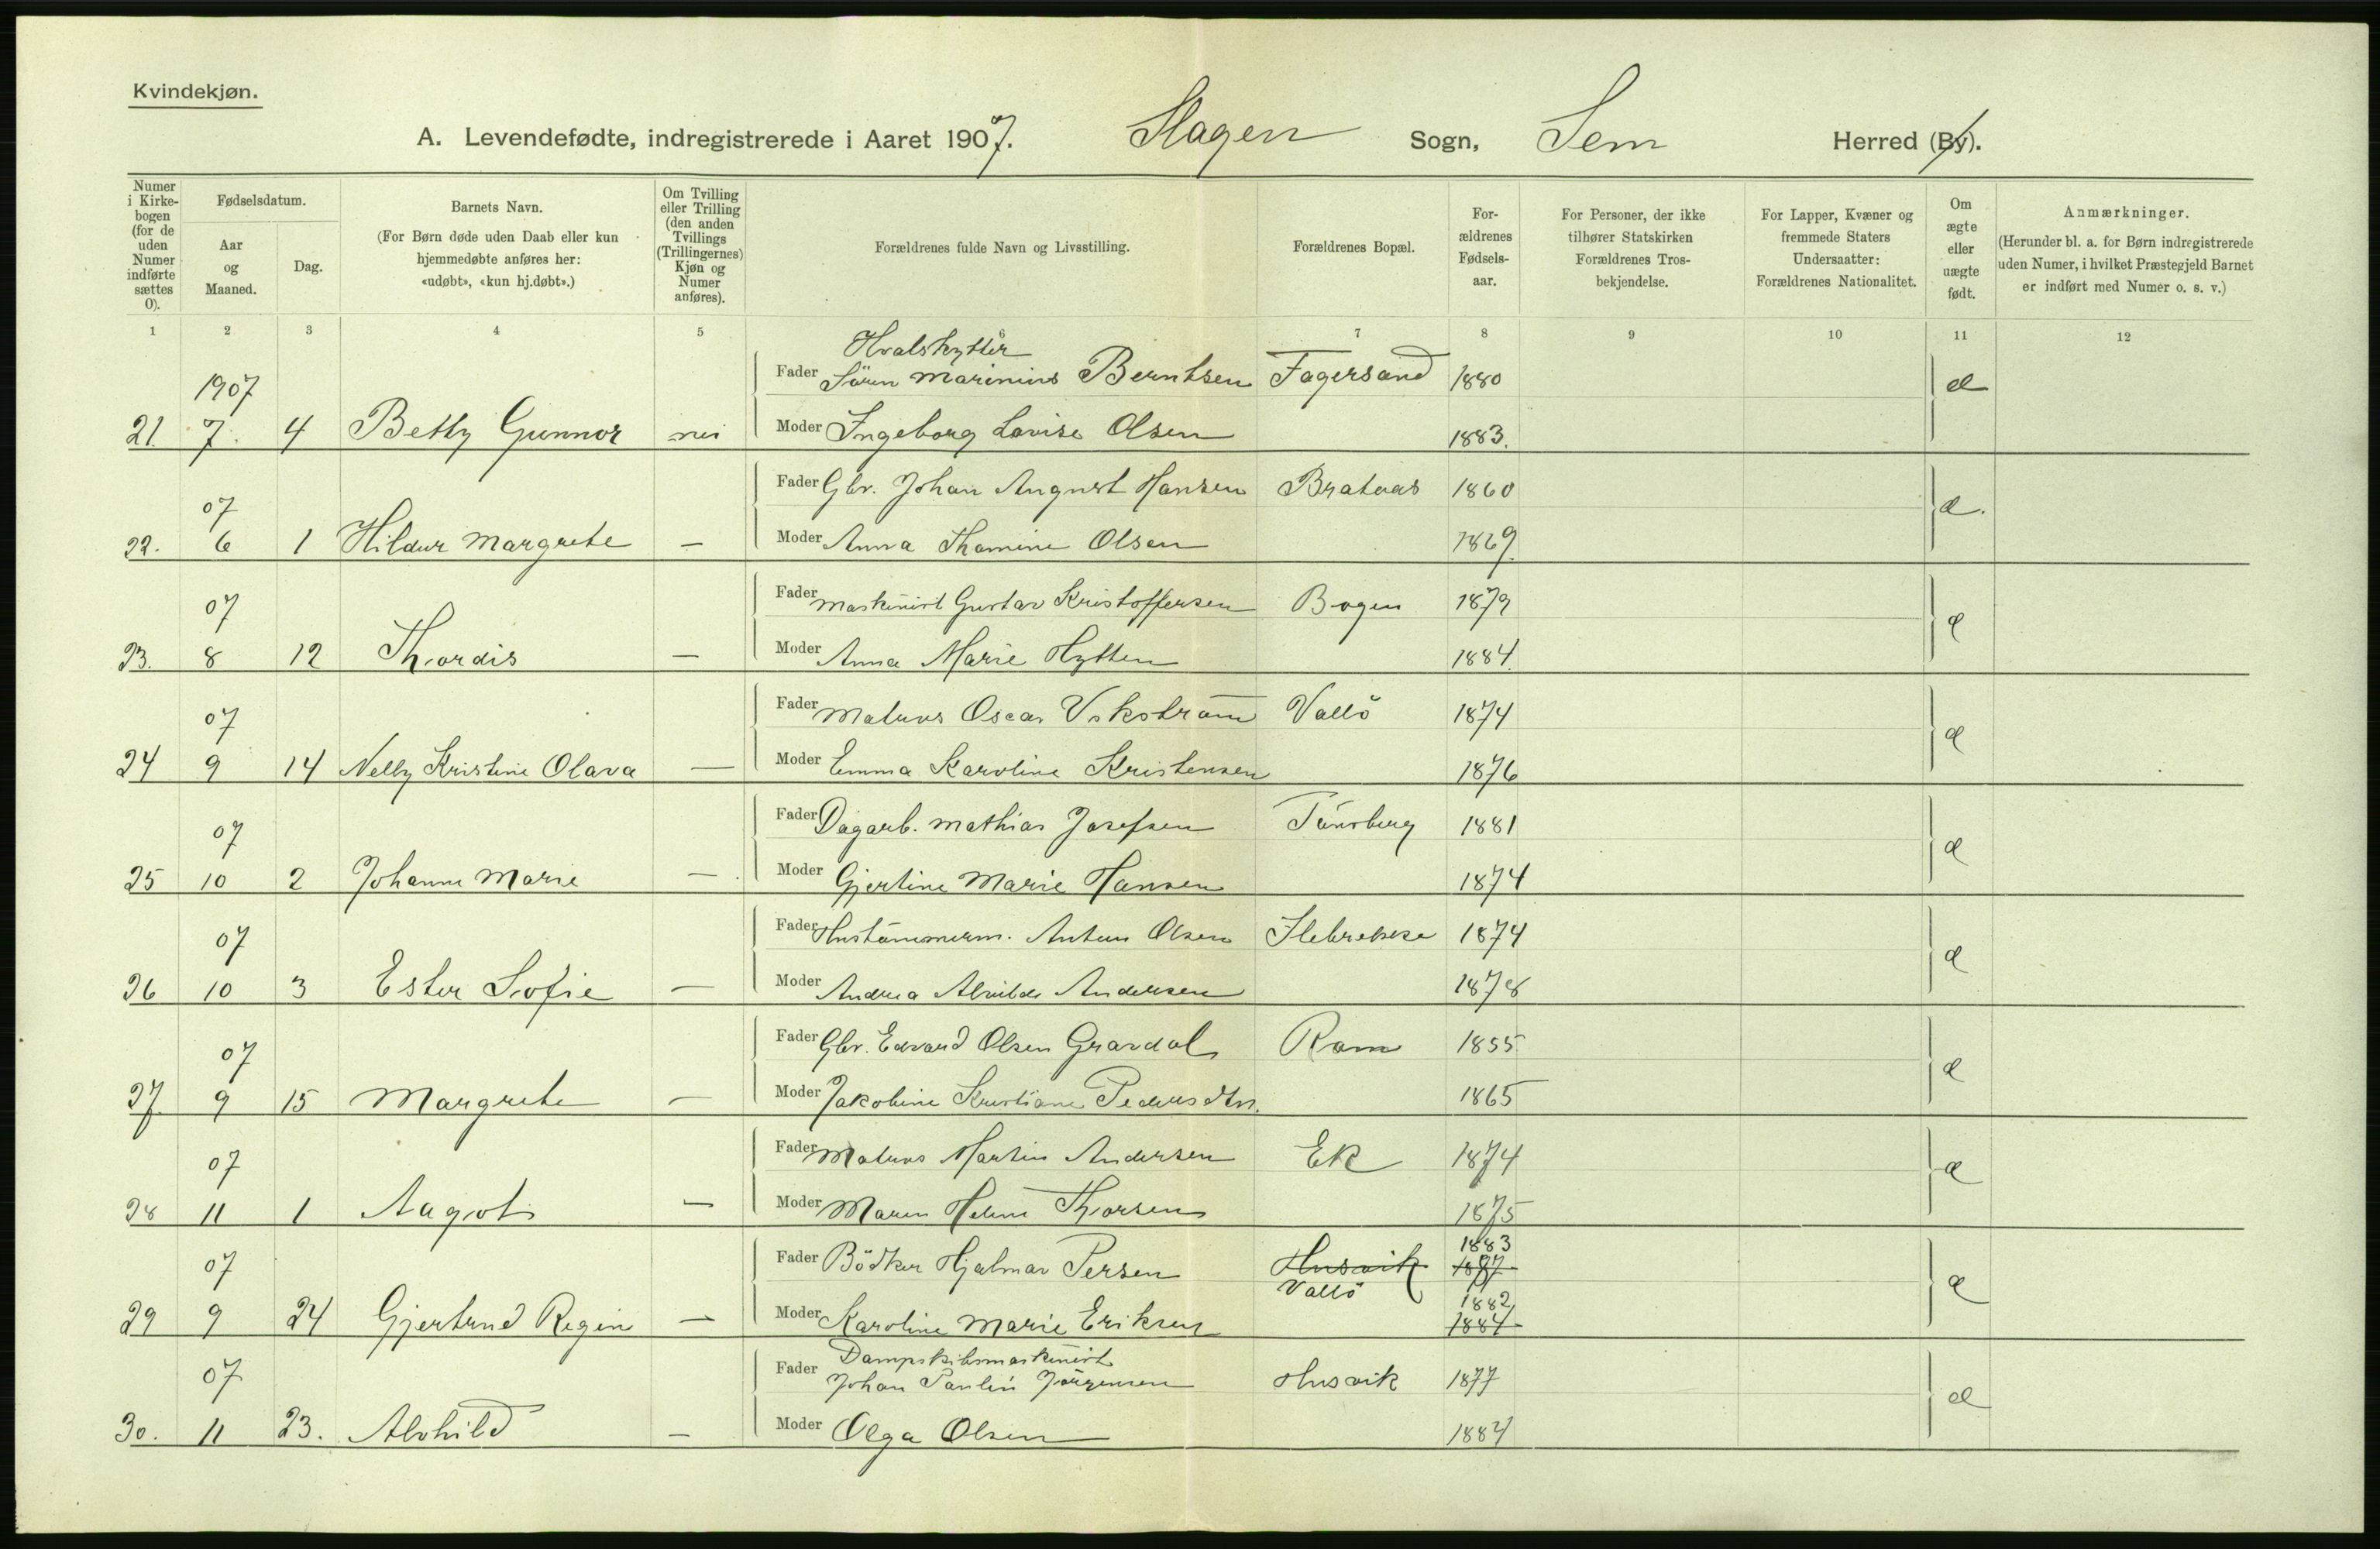 Kvindekjøn.
A. Levendefødte, indregistrerede i Aaret 1907. Slagen Sogn, Sem Herred (By).
Numer i Kirkebogen (for de uden Numer indførte sættes 0).
Fødselsdatum.
Aar og Maaned.
Dag.
Barnets Navn.
(For Børn døde uden Daab eller kun hjemmedøbte anføres her: «udøbt», «kun hj.døbt».)
Om Tvilling eller Trilling (den anden Tvillings (Trillingernes) Kjøn og Numer anføres).
Forældrenes fulde Navn og Livsstilling.
Forældrenes Bopæl.
Forældrenes Fødselsaar.
For Personer, der ikke tilhører Statskirken Forældrenes Trosbekjendelse.
For Lapper, Kvæner og fremmede Staters Undersaatter: Forældrenes Nationalitet.
Om ægte eller uægte født.
Anmærkninger.
(Herunder bl. a. for Børn indregistrerede uden Numer, i hvilket Præstegjeld Barnet er indført med Numer o. s. v.)
1 2 3 4 5 6 7 8 9 10 11 12
Hvalskytter
1907 Fader Sören Marinius Berntsen Fagersand 1880 æ
21. 7. 4 Betty Gunnor nei Moder Ingeborg Lovise Olsen 1883.
07 Fader Gbr. Johan August Hansen Brataas 1860 æ.
22. 6 1 Hildur Margrete — Moder Anna Thomine Olsen 1869.
07 Fader Maskinist Gustav Kristoffersen Bogen 1879 æ
23. 8 12 Thordis — Moder Anna Marie Hytten 1884.
07 Fader Matros Oscar Vikström Vallö 1874 æ
24 9 14 Nelly Kristine Olava — Moder Emma Karoline Kristensen 1876
07 Fader Dagarb. Mathias Josefsen Tönsberg 1881 æ
25 10 2 Johanne Marie — Moder Gjertine Marie Hansen 1874
07 Fader Hustömmerm. Anton Olsen Ilebrekke 1874 æ
26 10 3 Ester Sofie — Moder Andrea Alvilde Andersen 1878
07 Fader Gbr. Edvard Olsen Gravdal Rom 1855 æ
27. 9 15 Margrete — Moder Jakobine Kristiane Pedersdtr. 1865
07 Fader Matros Martin Andersen Ek 1874 æ
28 11 1 Aagot — Moder Maren Helene Thorsen 1875
1883
07 Fader Bödker Hjalmar Persen Husvik æ
Vallö
1882
29 9 24 Gjertrud Regin — Moder Karoline Marie Eriksen 1884
Dampskibsmaskinist
07 Fader Johan Paulin Jörgensen Husvik 1877 æ
30. 11 23. Alvhild — Moder Olga Olsen 1884